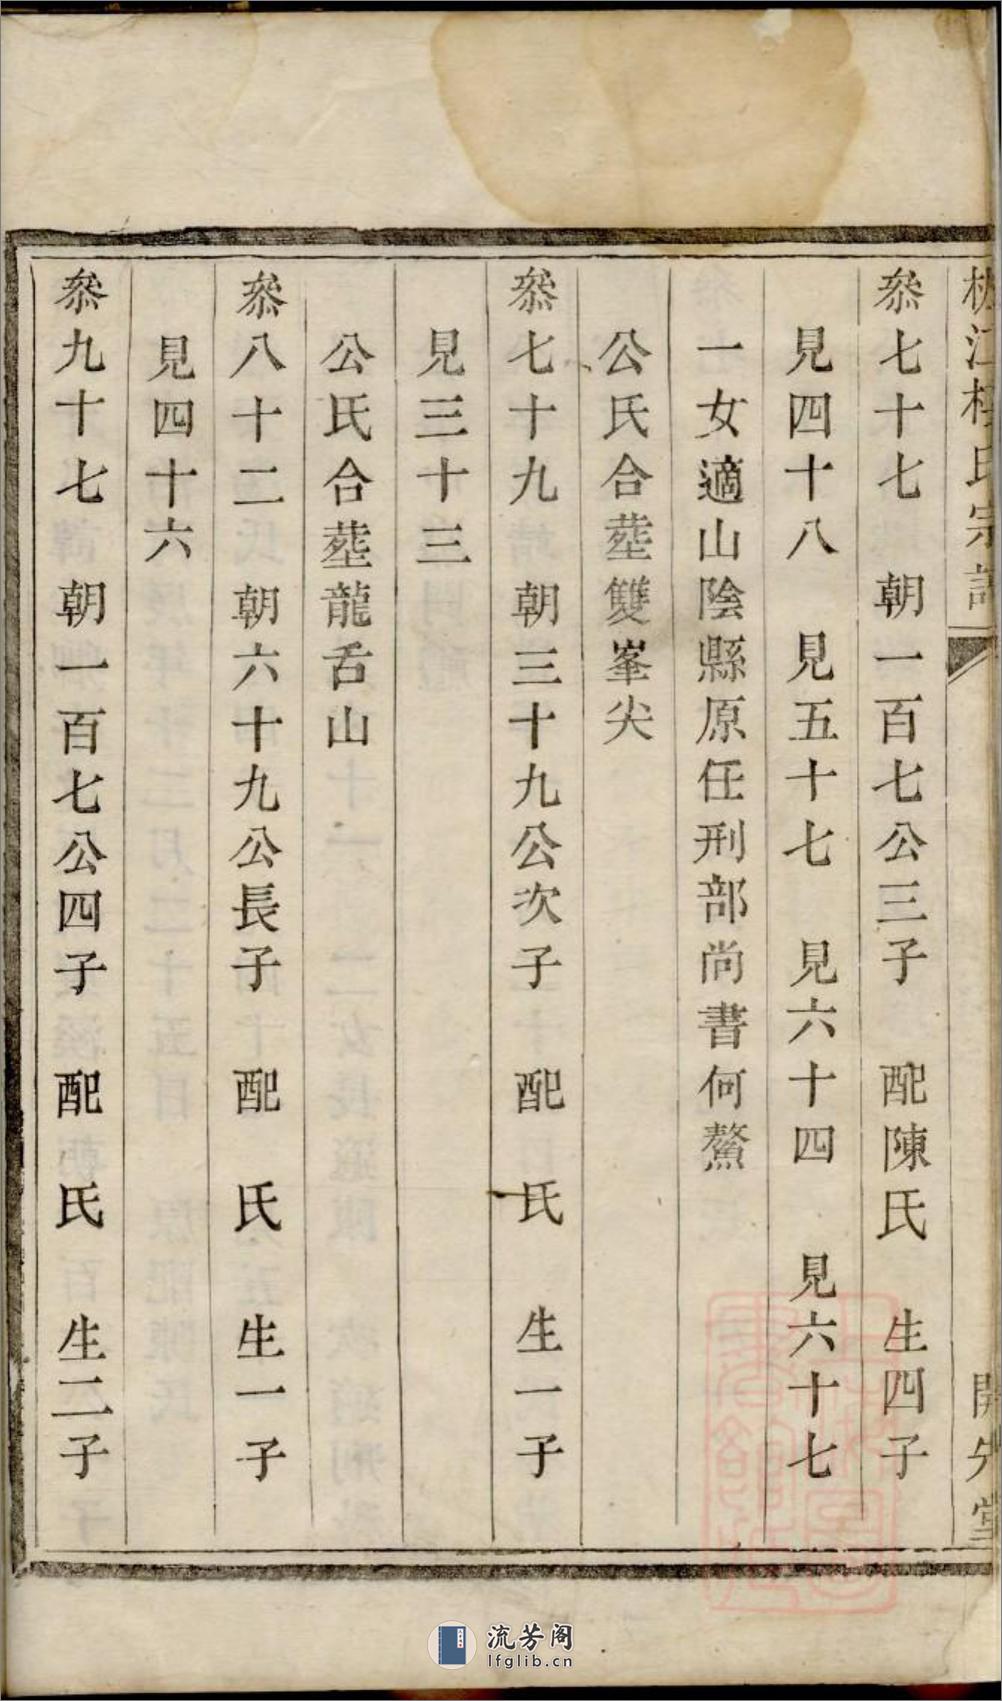 江 氏宗譜
開先堂
叅七十七 朝一百七公三子 配陳氏 生四子
見四十八 見五十七 見六十四 見六十七
一女適山陰縣原任刑部尚書何鰲
公氏合塟雙峯尖
叅七十九 朝三十九公次子 配 氏 生一子
見三十三
公氏合塟龍舌山
叅八十二 朝六十九公長子 配 氏 生一子
見四十六
叅九十七 朝一百七公四子 配 氏 生二子
流芳阁
lfglib.cn